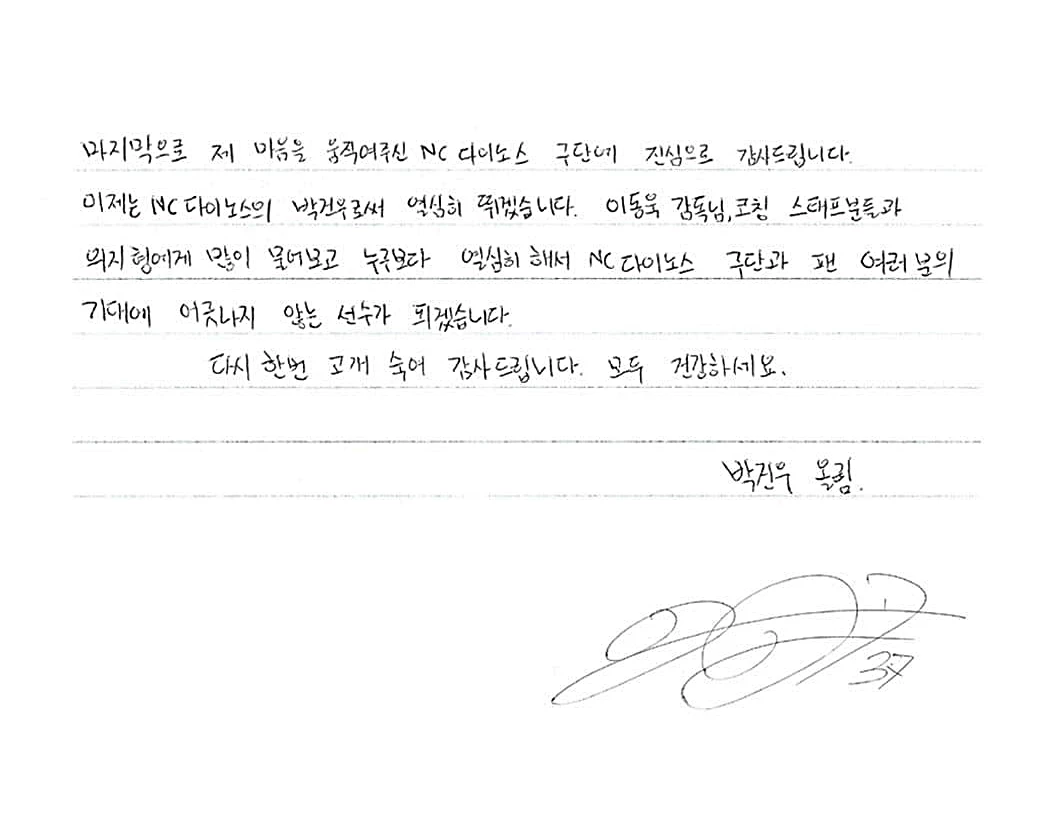 마지막으로 제 마음을 움직여주신 NC 다이노스 구단에 진심으로 감사드립니다.
이제는 NC 다이노스의 박건우로써 열심히 뛰겠습니다. 이동욱 감독님, 코칭 스태프분들과
의지형에게 많이 물어보고 누구보다 열심히 해서 NC 다이노스 구단과 팬 여러분의
기대에 어긋나지 않는 선수가 되겠습니다.
다시 한번 고개 숙여 감사드립니다. 모두 건강하세요.
박건우 올림.
37